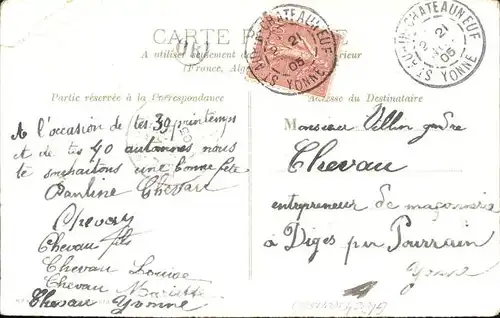 CARTE
A utiliser seulement
(France, Alg
Partie réservée à la Correspondance
Adresse du Destinataire
ST AUBIN CHATEAUNEUF
21
05
YONNE
ST AUBIN CHATEAUNEUF
21
05
YONNE
A l'occasion de tes 39 printemps
et de tes 40 automnes nous
te souhaitons une bonne fête
Pauline Chevau
Chevau
Chevau fils
Chevau Louise
Chevau Mariette
Chevau Yvonne
Monsieur Villin gendre
Chevau
entrepreneur de maçonnerie
à Diges par Pourrain
Yonne